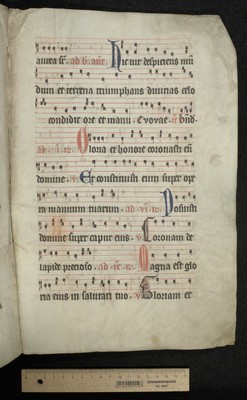 aurea sc̄. ad b. ant̄. Hic uir despiciens mū
dum et terrena triumphans diuitias celo
condidit ore et manu. Euouae. Bn̄d.
Gloria et honore coronasti eū
domine. Et constituisti eum super ope
ra manuum tuarum. ad vi. Posuisti
domine super caput eius. Coronam de
lapide precioso. ad ix. Magna est glo
ria eius in salutari tuo. Gloriam et